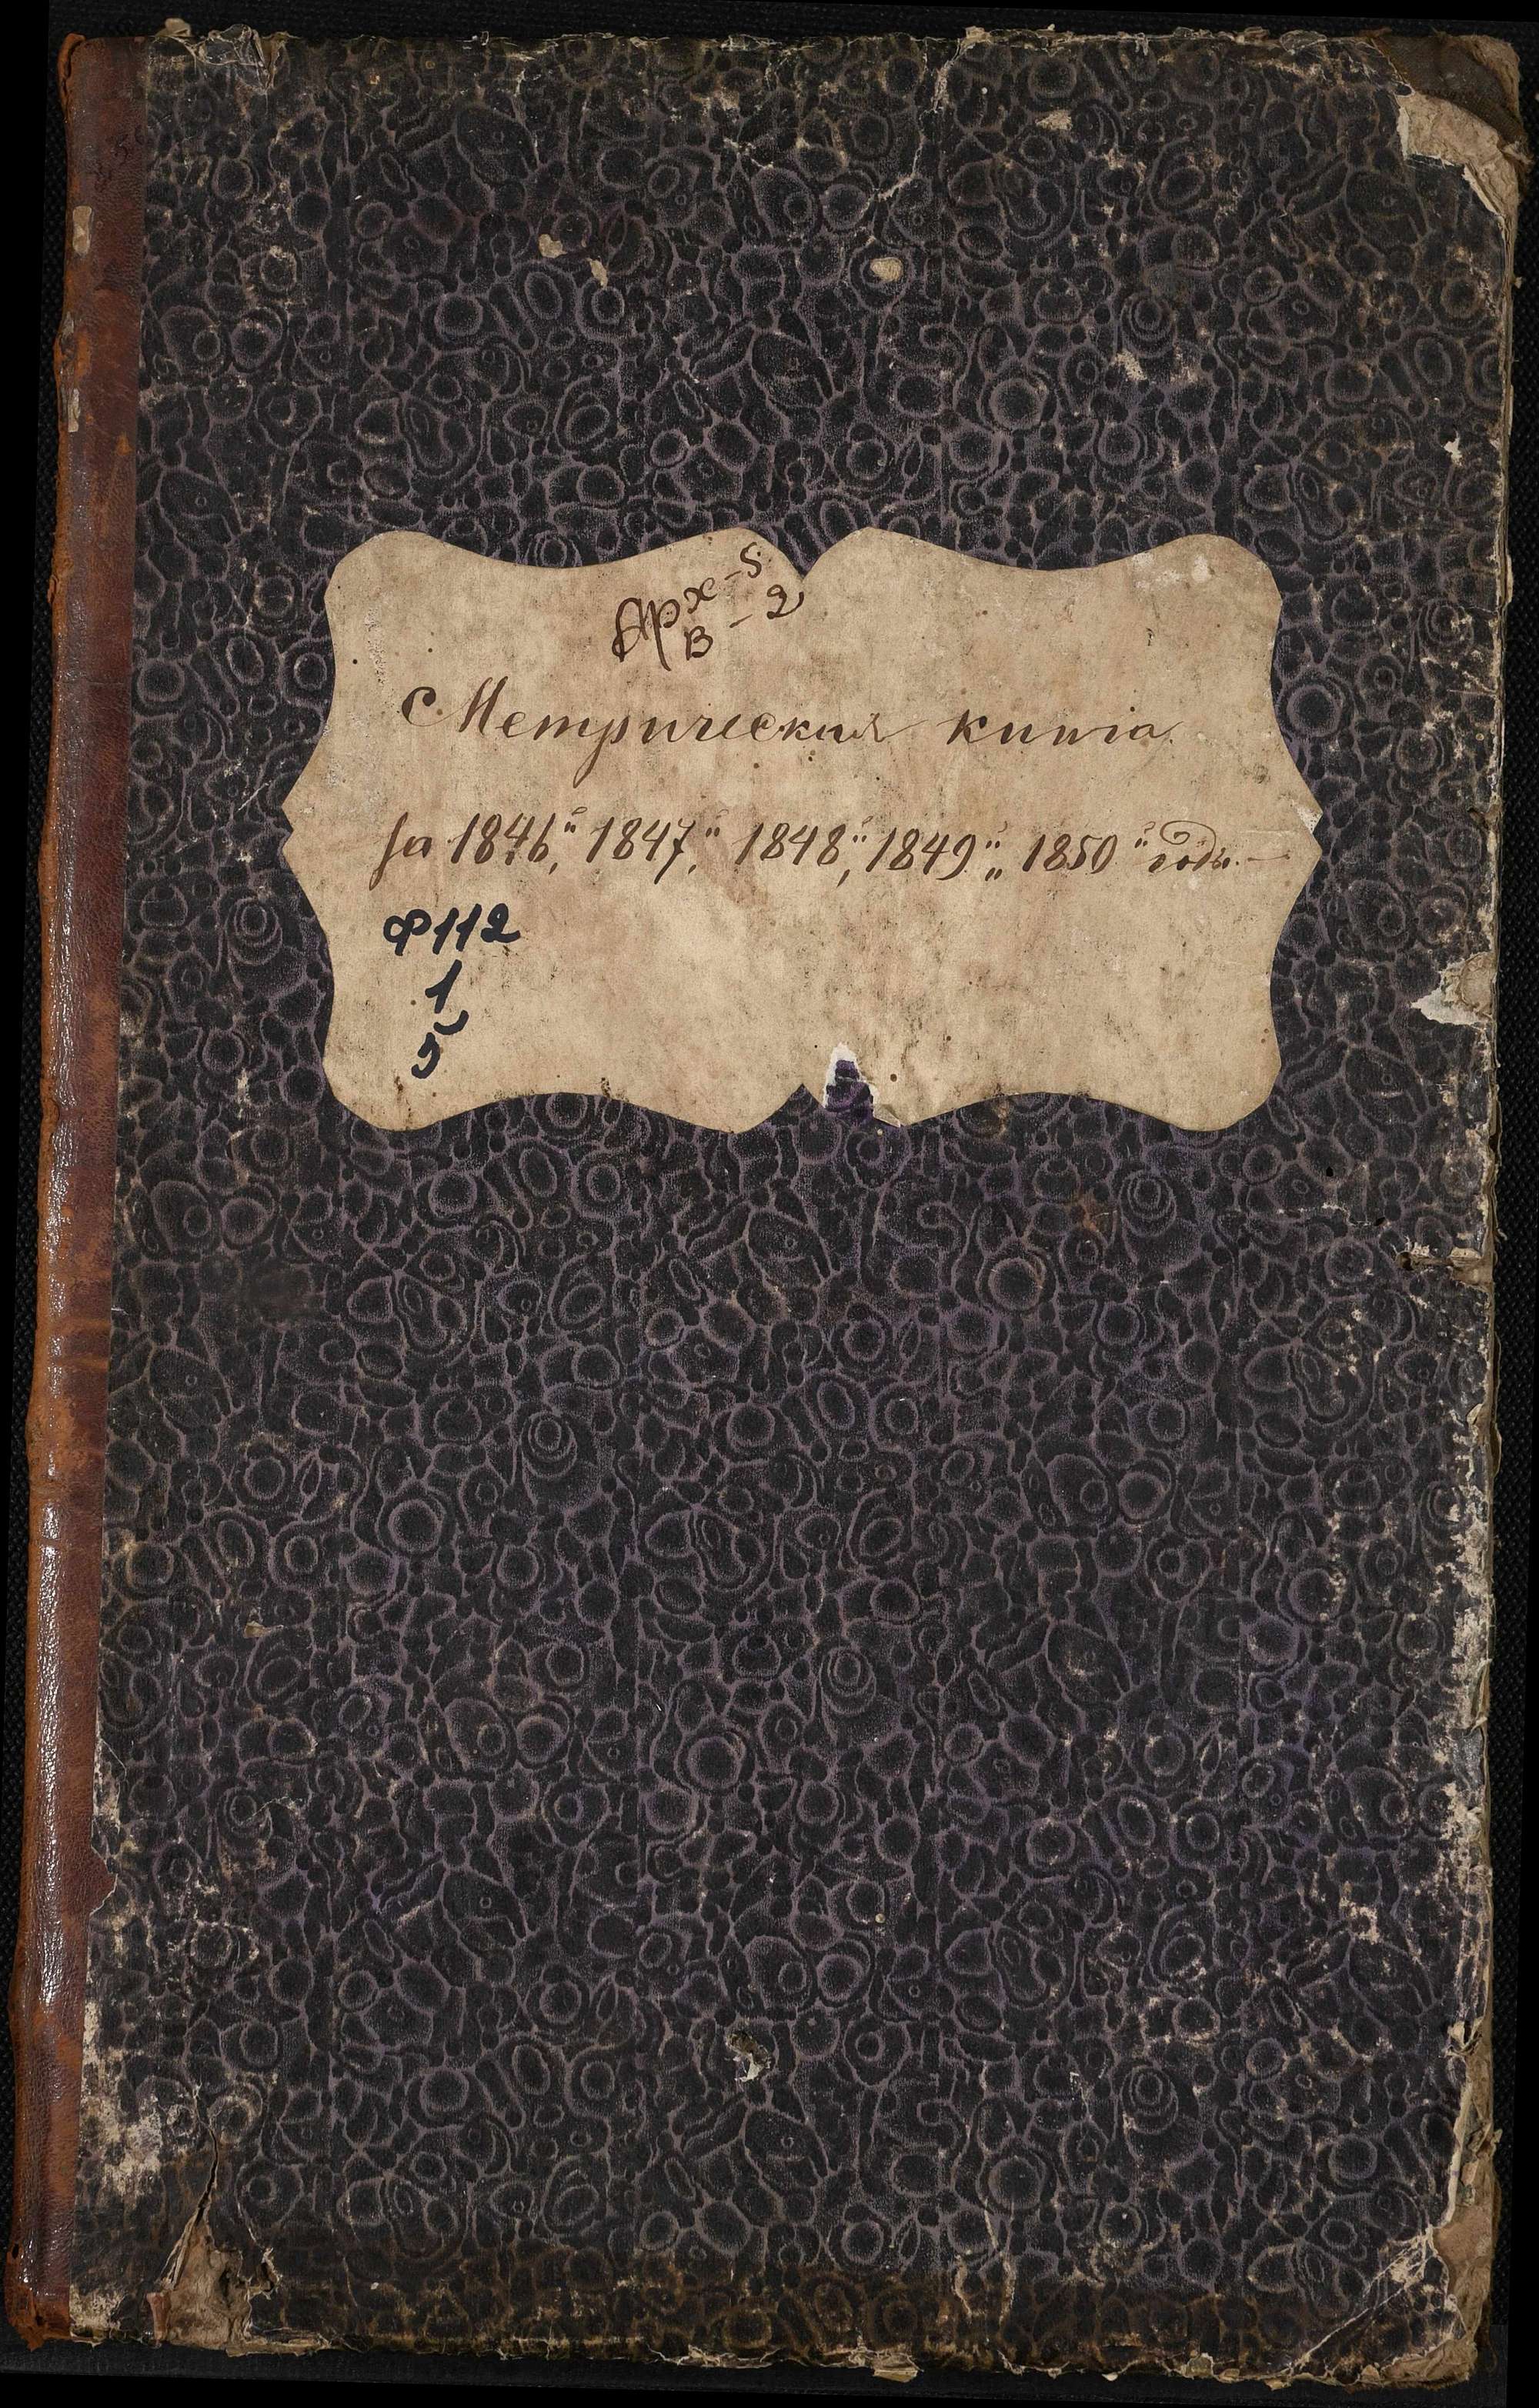 Арх-5
В-2
Метрическая книга
за 1846, 1847, 1848, 1849, 1850 годъ.
Ф112
1
5